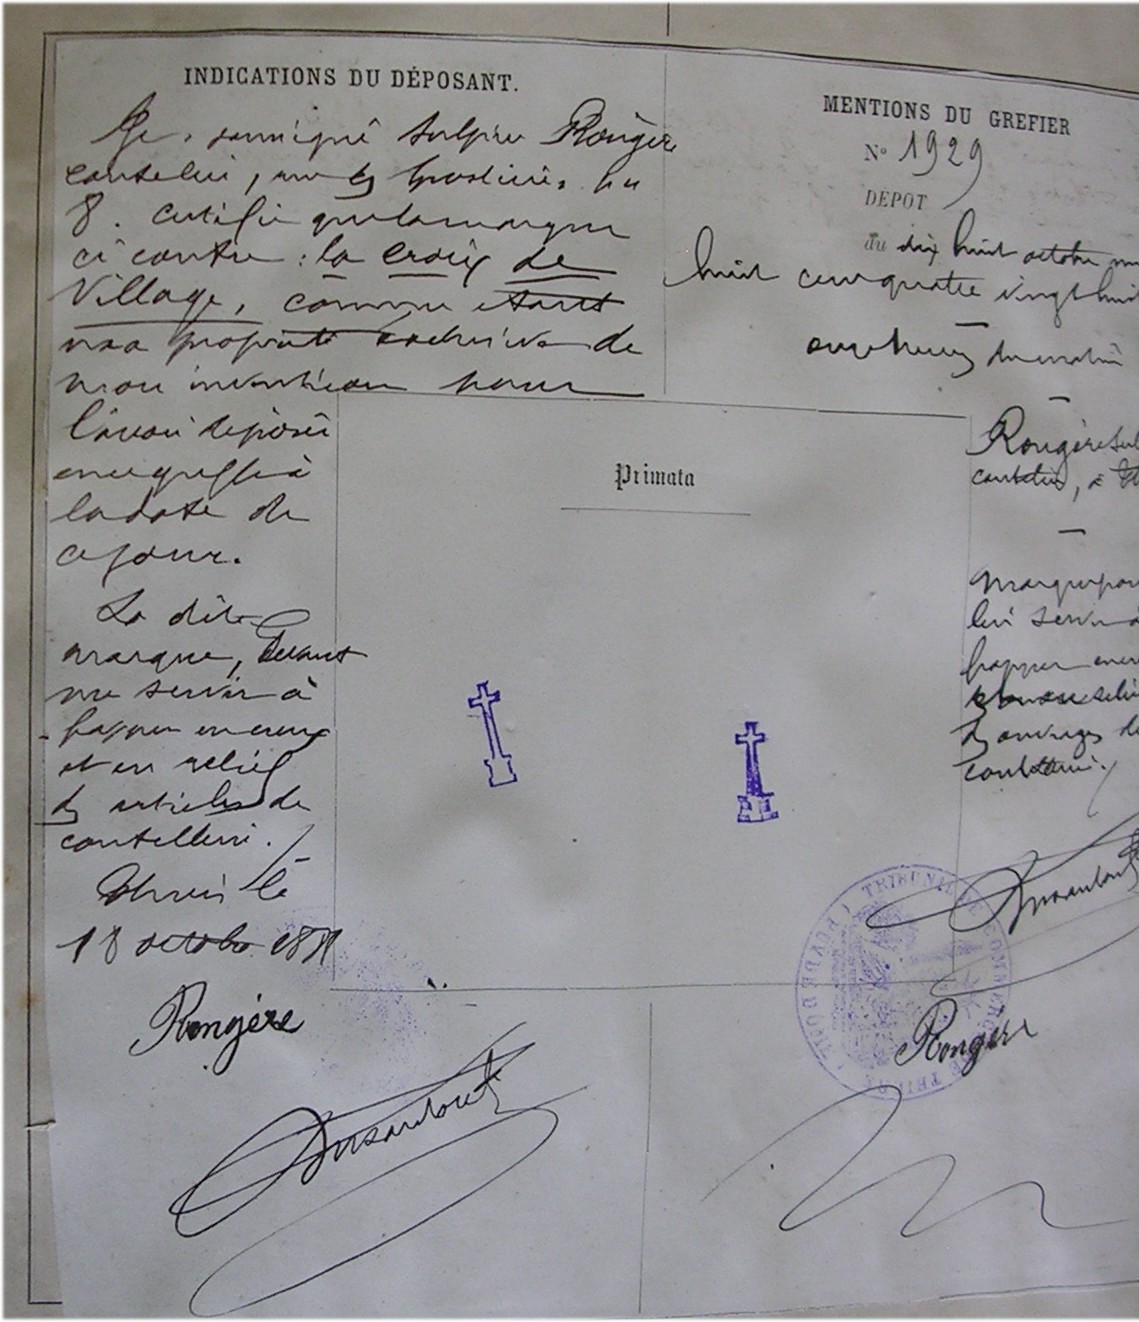 INDICATIONS DU DÉPOSANT.
Je, soussigné Sulpice Rongère
coutelier, rue des
8. certifie que la marque
ci contre : la croix de
Village, comme étant
ma propriété exclusive de
mon invention pour
l'avoir déposée
en ce greffe à
la date de
ce jour.
La dite
marque, devant
me servir à
frapper en creux
et en relief
des articles de
coutellerie.
Thiers le
18 octobre 1888
Rongère
MENTIONS DU GREFIER
N° 1929
DÉPOT
du dix huit octobre mil
huit cent quatre vingt huit
onze heures du matin
Rongère Sul
coutelier, à Th
Primata
Marque pour
lui servir à
frapper en creux
et en relief
des ouvrages de
coutellerie.
TRIBUNAL DE COMMERCE DE THIERS
(PUY DE DOME)
Rongère